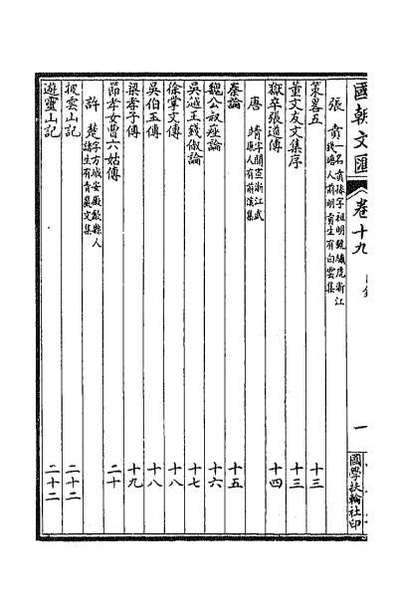 國朝文匯 卷十九 一 國學扶輪社印
張 賁 一名賁孫字祖明號繡虎浙江
錢唐人前明貢生有白雲集
策畧五 十三
董文友文集序 十三
獄卒張道傳 十四
唐 靖 字聞宣浙江武
康人有前溪集
秦論 十五
魏公叔痤論 十六
吳越王錢俶論 十七
徐掌文傳 十八
吳伯玉傳 十八
梁孝子傳 十九
節孝女曹六姑傳 二十
許 楚 字方城安徽歙縣人
諸生有青巖文集
披雲山記 二十二
遊靈山記 二十二